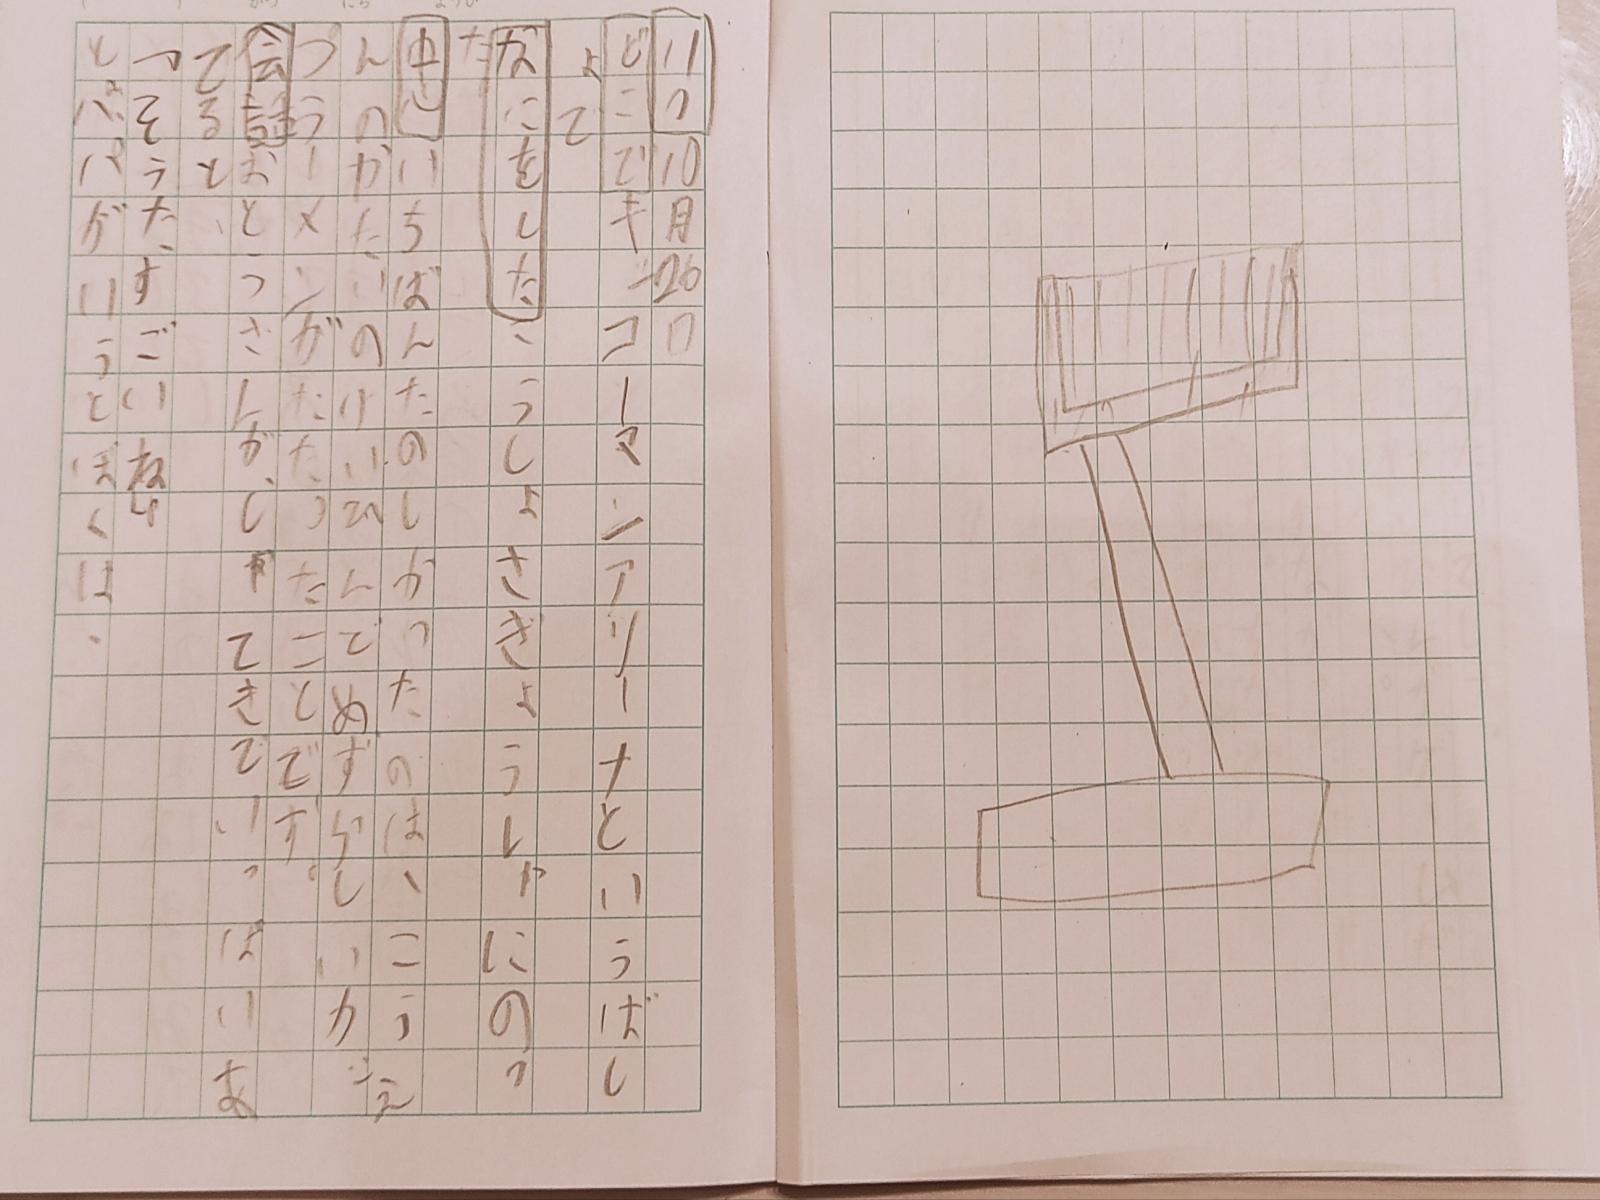 いつ10月26日
どこでキッコーマンアリーナというばし
ょで
なにをしたこうしょさぎょうしゃにのっ
た
中心いちばんたのしかったのは、こうえ
んのがたいのけいひんでめずらしいから
つうーメンがたたったことです。
会話おとうさんがしゃてきでいっぱいあ
てると、
「そうたすごいね」
とパパがいうとぼくは、